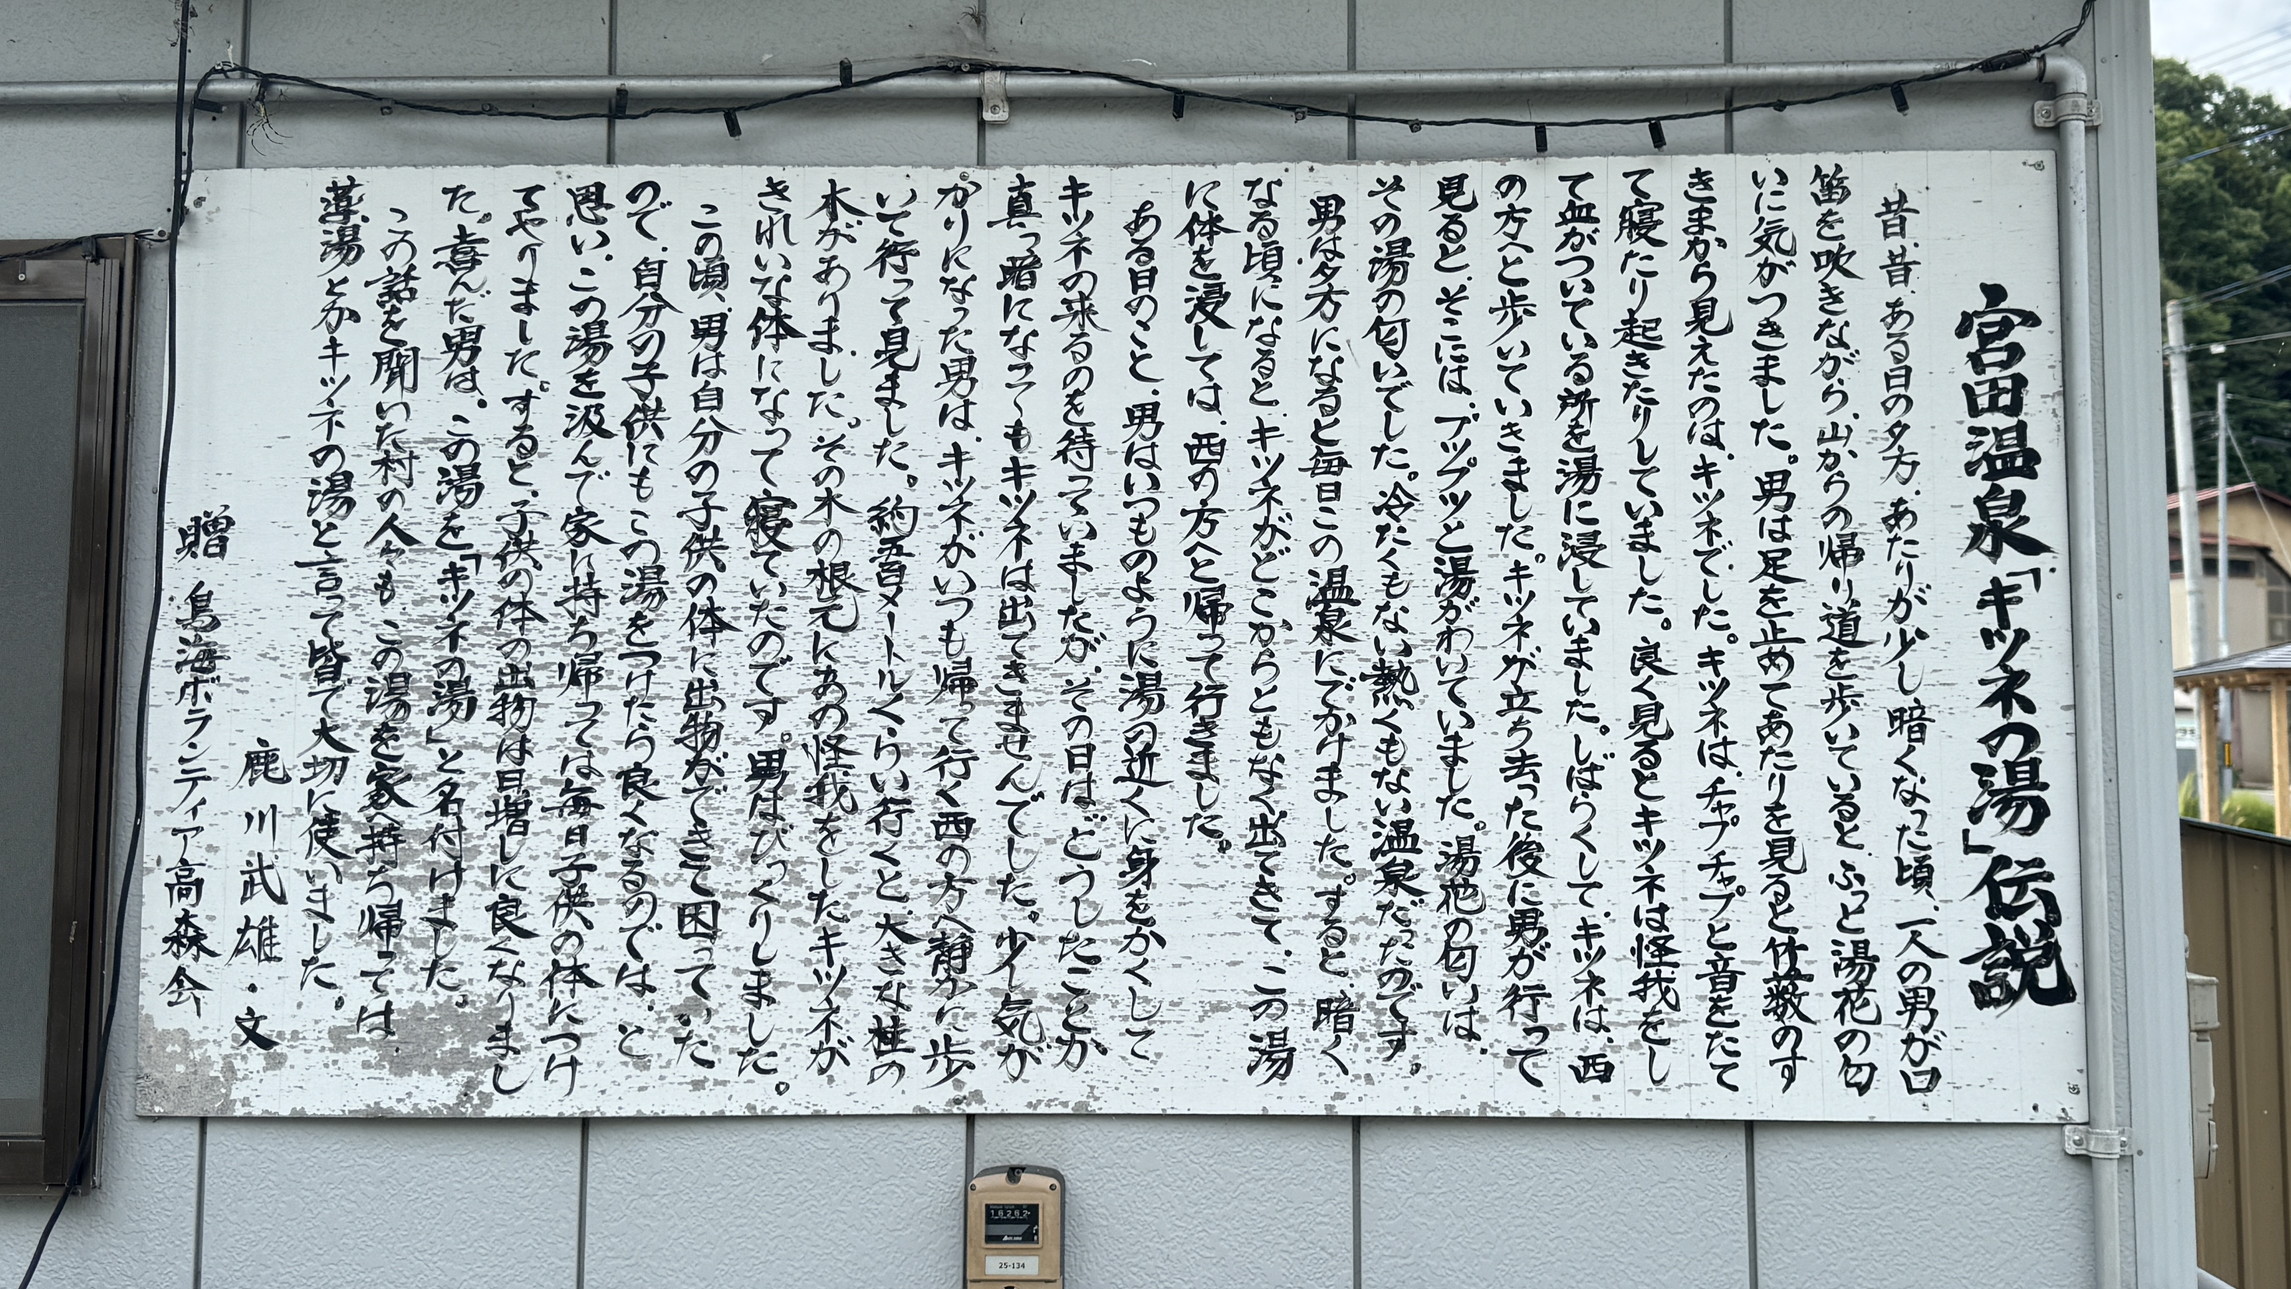 宮田温泉「キツネの湯」伝説
昔、昔、ある日の夕方、あたりが少し暗くなった頃、一人の男が口
笛を吹きながら、山からの帰り道を歩いていると、ふっと湯花の匂
いに気がつきました。男は足を止めてあたりを見ると竹薮のす
きまから見えたのは、キツネでした。キツネは、チャプチャプと音をたて
て寝たり起きたりしていました。良く見るとキツネは怪我をし
て血がついている所を湯に浸していました。しばらくして、キツネは、西
の方へと歩いていきました。キツネが立ち去った後に男が行って
見ると、そこには、プップツと湯がわいていました。湯花の匂いは、
その湯の匂いでした。冷たくもない熱くもない温泉だったのです。
男は夕方になると毎日この温泉にでかけました。すると、暗く
なる頃になると、キツネがどこからともなく出てきて、この湯
に体を浸しては、西の方へと帰って行きました。
ある日のこと、男はいつものように湯の近くに身をかくして
キツネの来るのを待っていましたが、その日はどうしたことか
真っ暗になってもキツネは出てきませんでした。少し気が
かりになった男は、キツネがいつも帰って行く西の方へ静かに歩
いて行って見ました。約五百メートルくらい行くと、大きな桂の
木がありました。その木の根元にあの怪我をしたキツネが
きれいな体になって寝ていたのです。男はびっくりしました。
この頃、男は自分の子供の体に出物ができて困っていた
ので、自分の子供にもこの湯をつけたら良くなるのでは、と
思い、この湯を汲んで家に持ち帰っては毎日子供の体につけ
てやりました。すると、子供の体の出物は日増しに良くなりまし
た。喜んだ男は、この湯を「キツネの湯」と名付けました。
この話を聞いた村の人々も、この湯を家へ持ち帰っては
薬湯とかキツネの湯と言って皆で大切に使いました。
鹿川武雄・文
贈 鳥海ボランティア高森会
16262
25-134